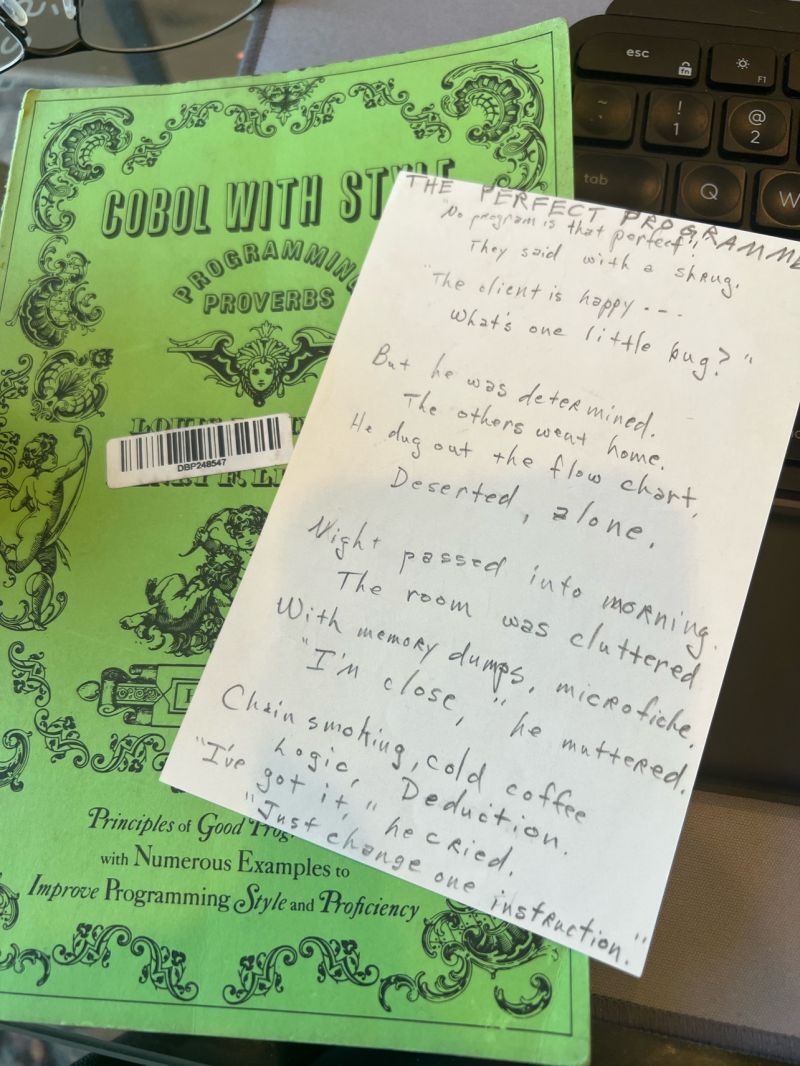 COBOL WITH STYLE
PROGRAMMING
PROVERBS
DBP248547
Principles of Good
with Numerous Examples to
Improve Programming Style and Proficiency
THE PERFECT PROGRAMME
"No program is that perfect",
They said with a shrug.
"The client is happy---
What's one little bug?"
But he was determined.
The others went home.
He dug out the flow chart,
Deserted, alone.
Night passed into morning.
The room was cluttered
With memory dumps, microfiche.
"I'm close," he muttered.
Chain smoking, cold coffee
Logic, Deduction.
"I've got it," he cried.
"Just change one instruction."
esc
fn
F1
~
`
!
1
@
2
tab
Q
W